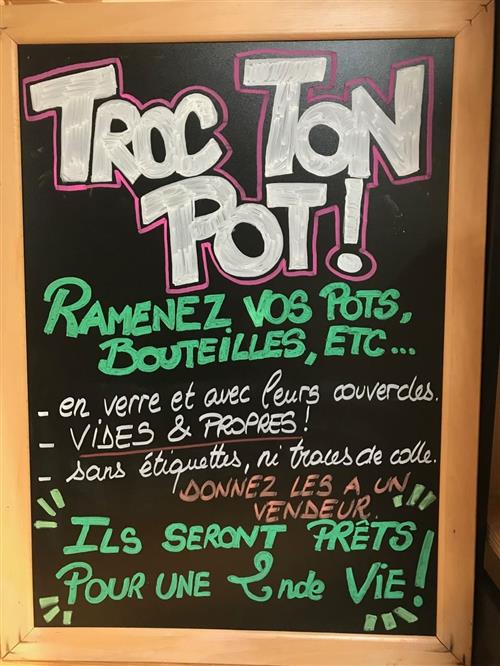 TROC TON
POT!
RAMENEZ VOS POTS,
BOUTEILLES, ETC...
- en verre et avec leurs couvercles.
- VIDES & PROPRES!
- sans étiquettes, ni traces de colle.
DONNEZ LES A UN
VENDEUR.
ILS SERONT PRÊTS
POUR UNE 2nde VIE!